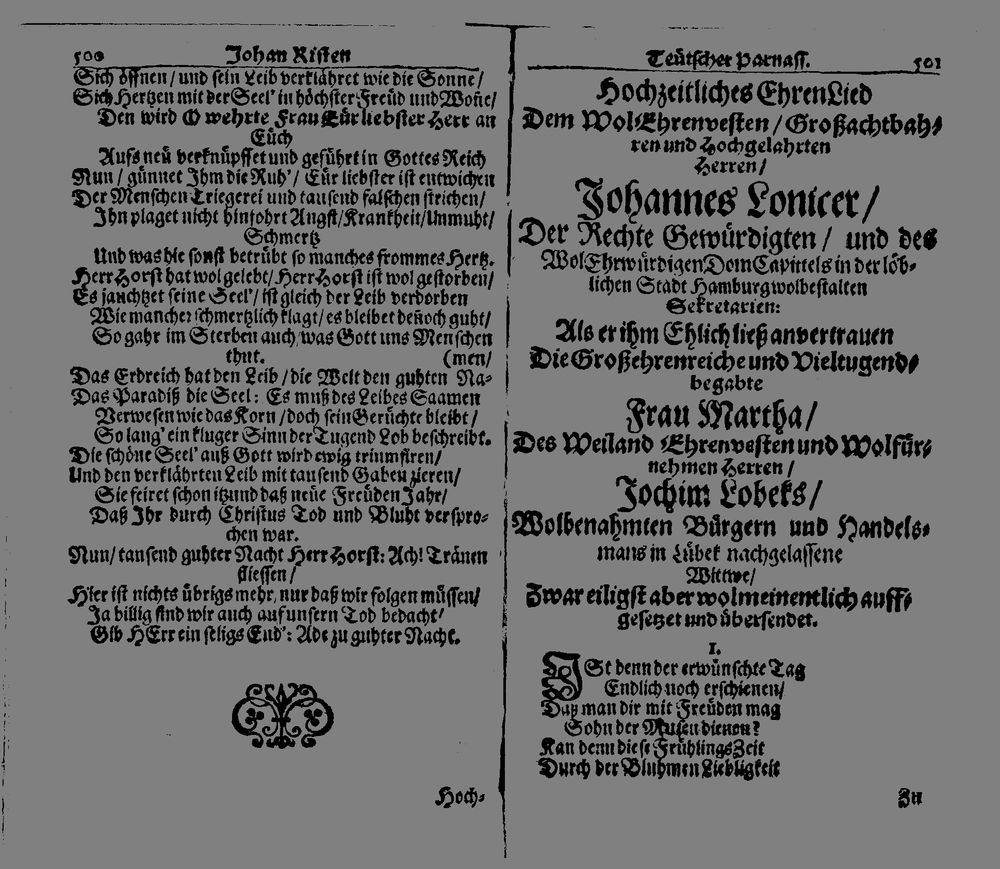 500 Johan Risten
Sich öffnen / und sein Leib verklähret wie die Sonne /
Sich Hertzen mit der Seel' in höchster Freüd und Woñe /
Den wird O wehrte Frau Eür liebster Herr an
Eüch
Aufs neü verknüpffet und geführt in Gottes Reich
Nun / günnet Ihm die Ruh' / Eür liebster ist entwichen
Der Menschen Triegerei und tausend falschen strichen /
Ihn plaget nicht hinfohrt Angst / Krankheit / Unmuht /
Schmertz
Und was hie sonst betrübt so manches frommes Hertz.
Herr Horst hat wol gelebt / Herr Horst ist wol gestorben /
Es jauchtzet seine Seel' / ist gleich der Leib verdorben
Wie mancher schmertzlich klagt / es bleibet deñoch guht /
So gahr im Sterben auch / was Gott uns Menschen
thut. (men /
Das Erdreich hat den Leib / die Welt den guhten Na-
Das Paradiß die Seel: Es muß des Leibes Saamen
Verwesen wie das Korn / doch sein Gerüchte bleibt /
So lang' ein kluger Sinn der Tugend Lob beschreibt.
Die schöne Seel' auß Gott wird ewig triumfiren /
Und den verklährten Leib mit tausend Gaben zieren /
Sie feiret schon itzund daß neüe Freüden Jahr /
Daß Ihr durch Christus Tod und Bluht verspro-
chen war.
Nun / tausend guhter Nacht Herr Horst: Ach! Tränen
fliessen /
Hier ist nichts übrigs mehr / nur daß wir folgen müssen /
Ja billig sind wir auch auf unsern Tod bedacht /
Gib HErr ein seligs End': Ade zu guhter Nacht.
Hoch-
Teütscher Parnass. 501
Hochzeitliches EhrenLied
Dem WolEhrenvesten / Großachtbah-
ren und Hochgelahrten
Herren /
Johannes Lonicer /
Der Rechte Gewürdigten / und des
WolEhrwürdigen DomCapittels in der löb-
lichen Stadt Hamburg wolbestalten
Sekretarien:
Als er ihm Ehlich ließ anvertrauen
Die Großehrenreiche und Vieltugend-
begabte
Frau Martha /
Des Weiland Ehrenvesten und Wolfür-
nehmen Herren /
Jochim Lobeks /
Wolbenahmten Bürgern und Handels-
mans in Lübek nachgelassene
Wittwe /
Zwar eiligst aber wolmeinentlich auff-
gesetzet und übersendet.
1.
ISt denn der erwünschte Tag
Endlich noch erschienen /
Daß man dir mit Freüden mag
Sohn der Musen dienen?
Kan denn diese FrühlingsZeit
Durch der Bluhmen Liebligkeit
Zu